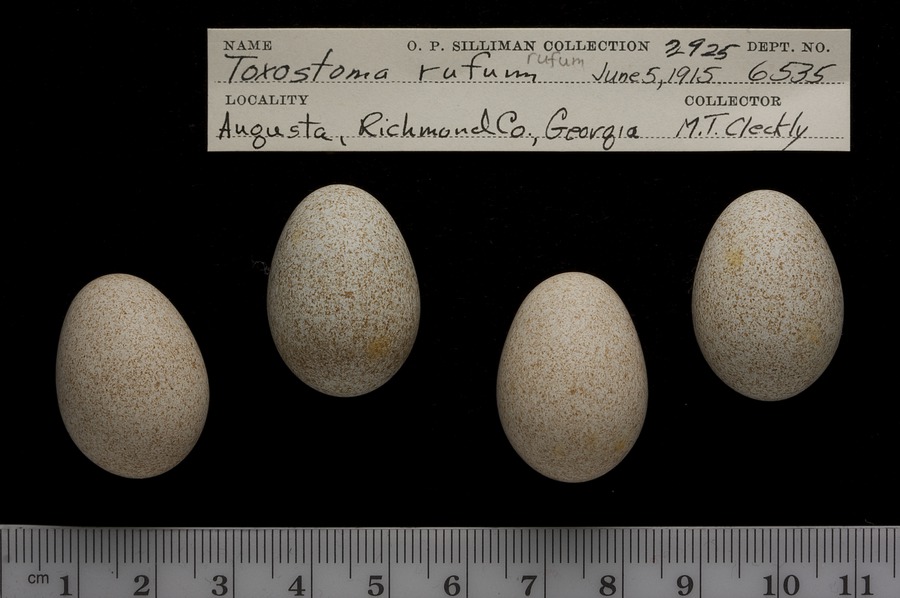 NAME O. P. SILLIMAN COLLECTION 2925 DEPT. NO.
rufum
Toxostoma rufum June 5, 1915 6535
LOCALITY COLLECTOR
Augusta, Richmond Co., Georgia M.T. Cleckly
cm 1 2 3 4 5 6 7 8 9 10 11